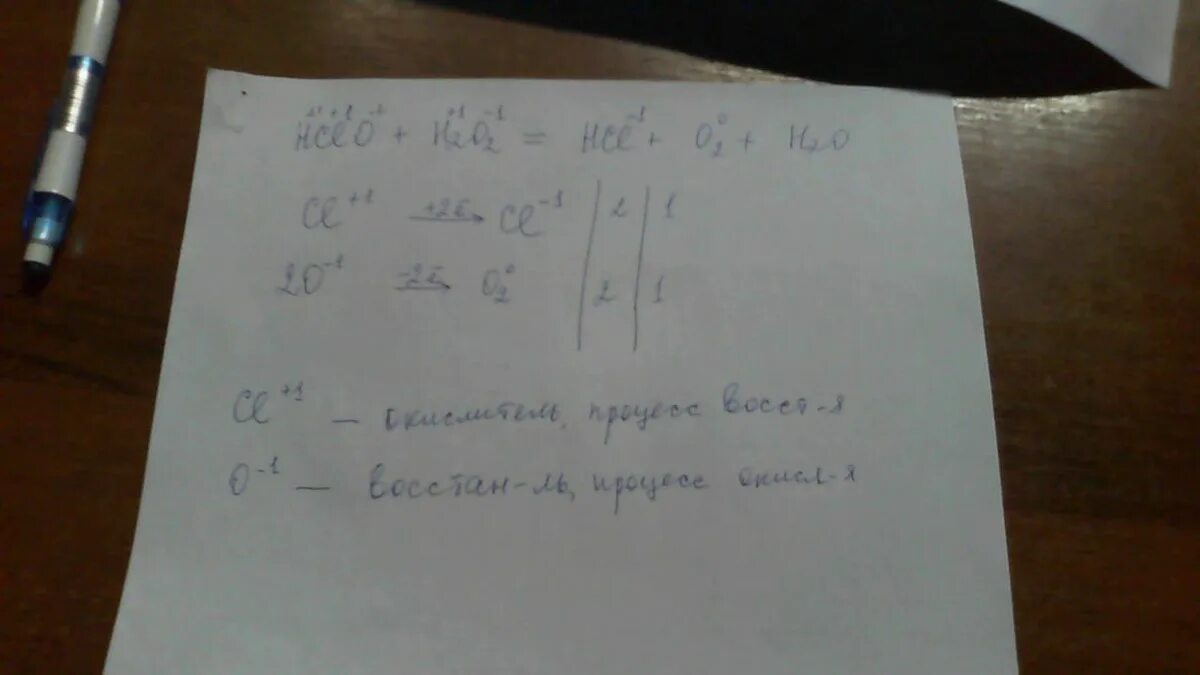 H⁺¹Cl⁺¹O⁻² + H₂⁺¹O₂⁻¹ = HCl⁻¹ + O₂⁰ + H₂O
Cl⁺¹ +2ē→ Cl⁻¹ | 2 | 1
2O⁻¹ -2ē→ O₂⁰ | 2 | 1
Cl⁺¹ — окислитель, процесс восст-я
O⁻¹ — восстан-ль, процесс окисл-я